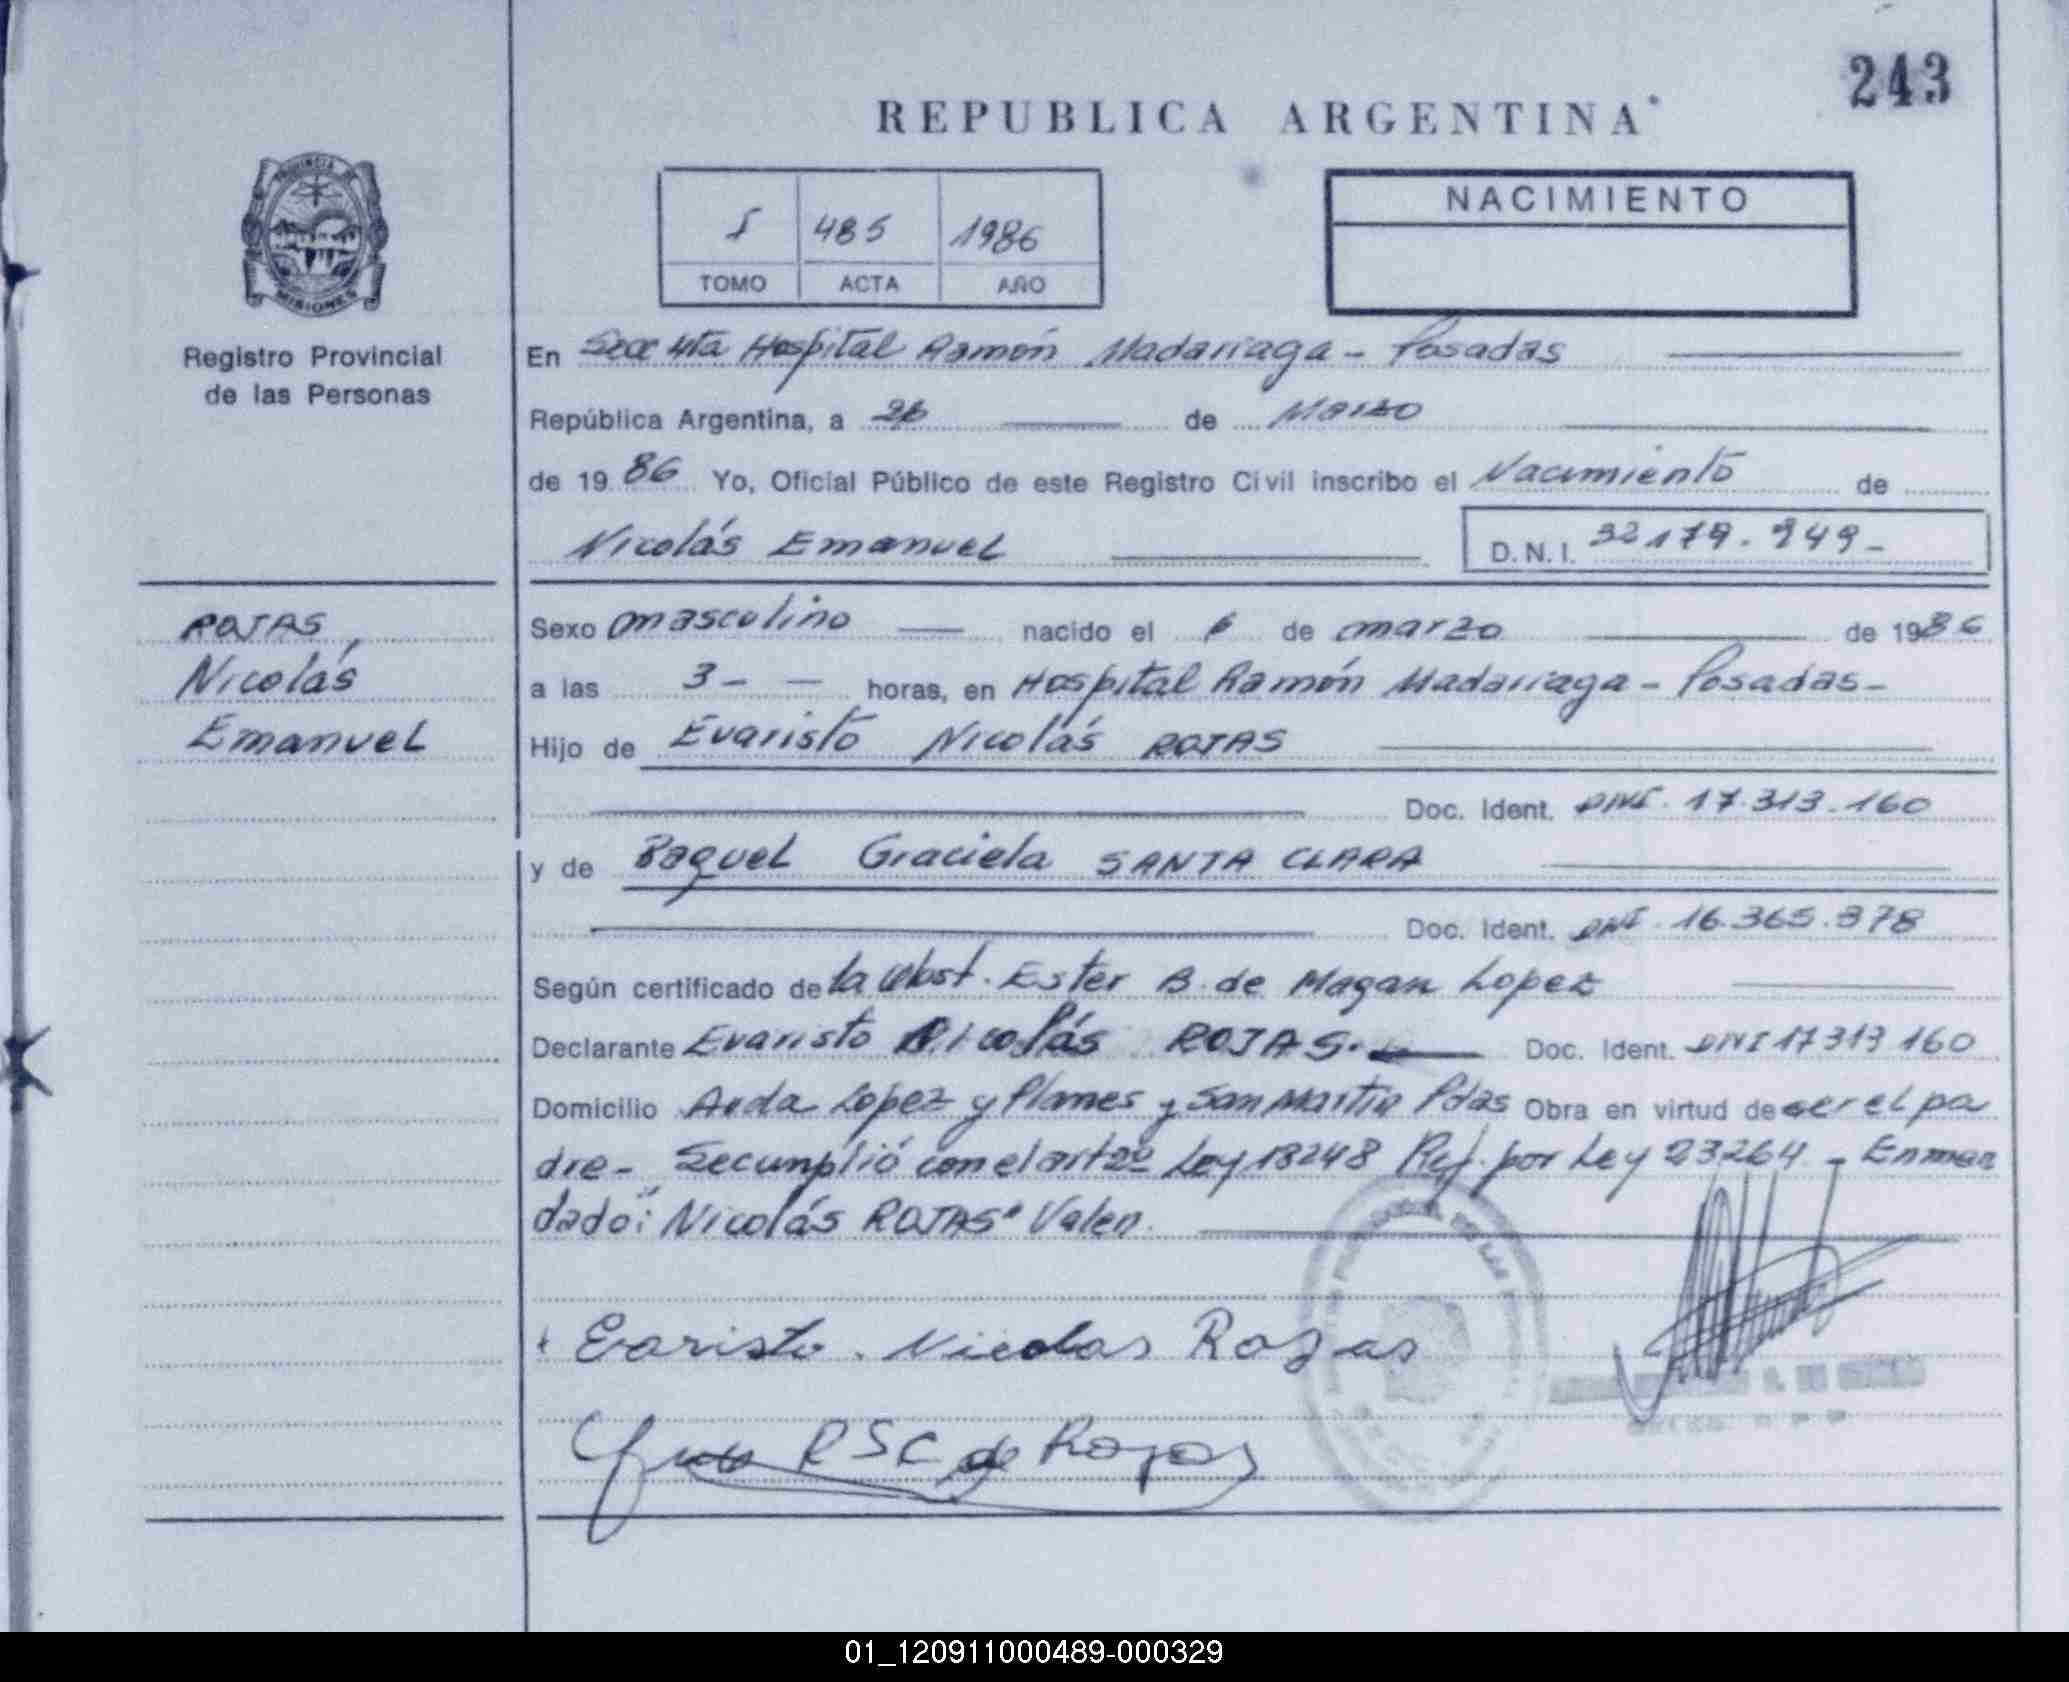 243
REPUBLICA ARGENTINA
PROVINCIA DE
MISIONES
Registro Provincial
de las Personas
I 485 1986
TOMO ACTA AÑO
NACIMIENTO
En Secc 4ta Hospital Ramón Madariaga - Posadas
República Argentina, a 26 de Marzo
de 1986 Yo, Oficial Público de este Registro Civil inscribo el Nacimiento de
Nicolás Emanuel D.N.I. 32179.949-
ROJAS,
Nicolás
Emanuel
Sexo masculino nacido el 6 de marzo de 1986
a las 3 - - horas, en Hospital Ramón Madariaga - Posadas -
Hijo de Evaristo Nicolás ROJAS
Doc. Ident. DNI. 17.313.160
y de Raquel Graciela SANTA CLARA
Doc. Ident. DNI. 16.365.378
Según certificado de la obst. Ester B. de Magan Lopez
Declarante Evaristo Nicolás ROJAS. Doc. Ident. DNI 17313160
Domicilio Avda Lopez y Planes y San Martin Pdas Obra en virtud de ser el pa
dre - Se cumplió con el art 2º Ley 18248 Ref. por Ley 23264 - Enmen
dado: "Nicolás ROJAS" Valen.
Evaristo. Nicolas Rojas
RSC de Rojas
01_120911000489-000329